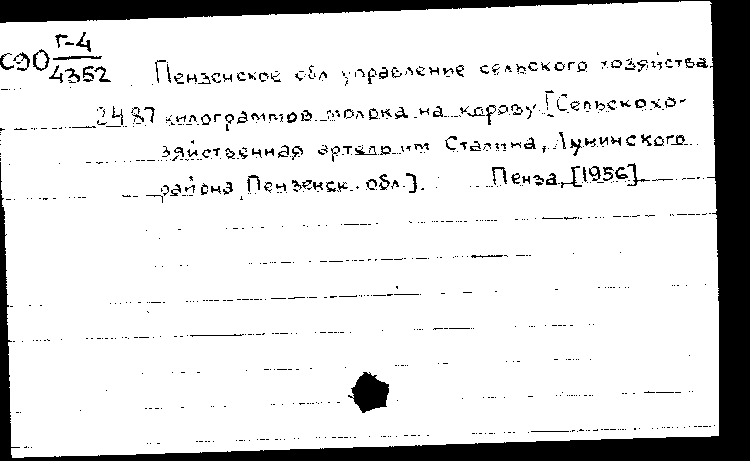 Г-4
СЭО 4352
Пензенское обл управление сельского хозяйства
2487 килограммов молока на корову [Сельскохо-
зяйственная артель им Сталина, Лунинского
района, Пензенск. обл.]. Пенза, [1956].